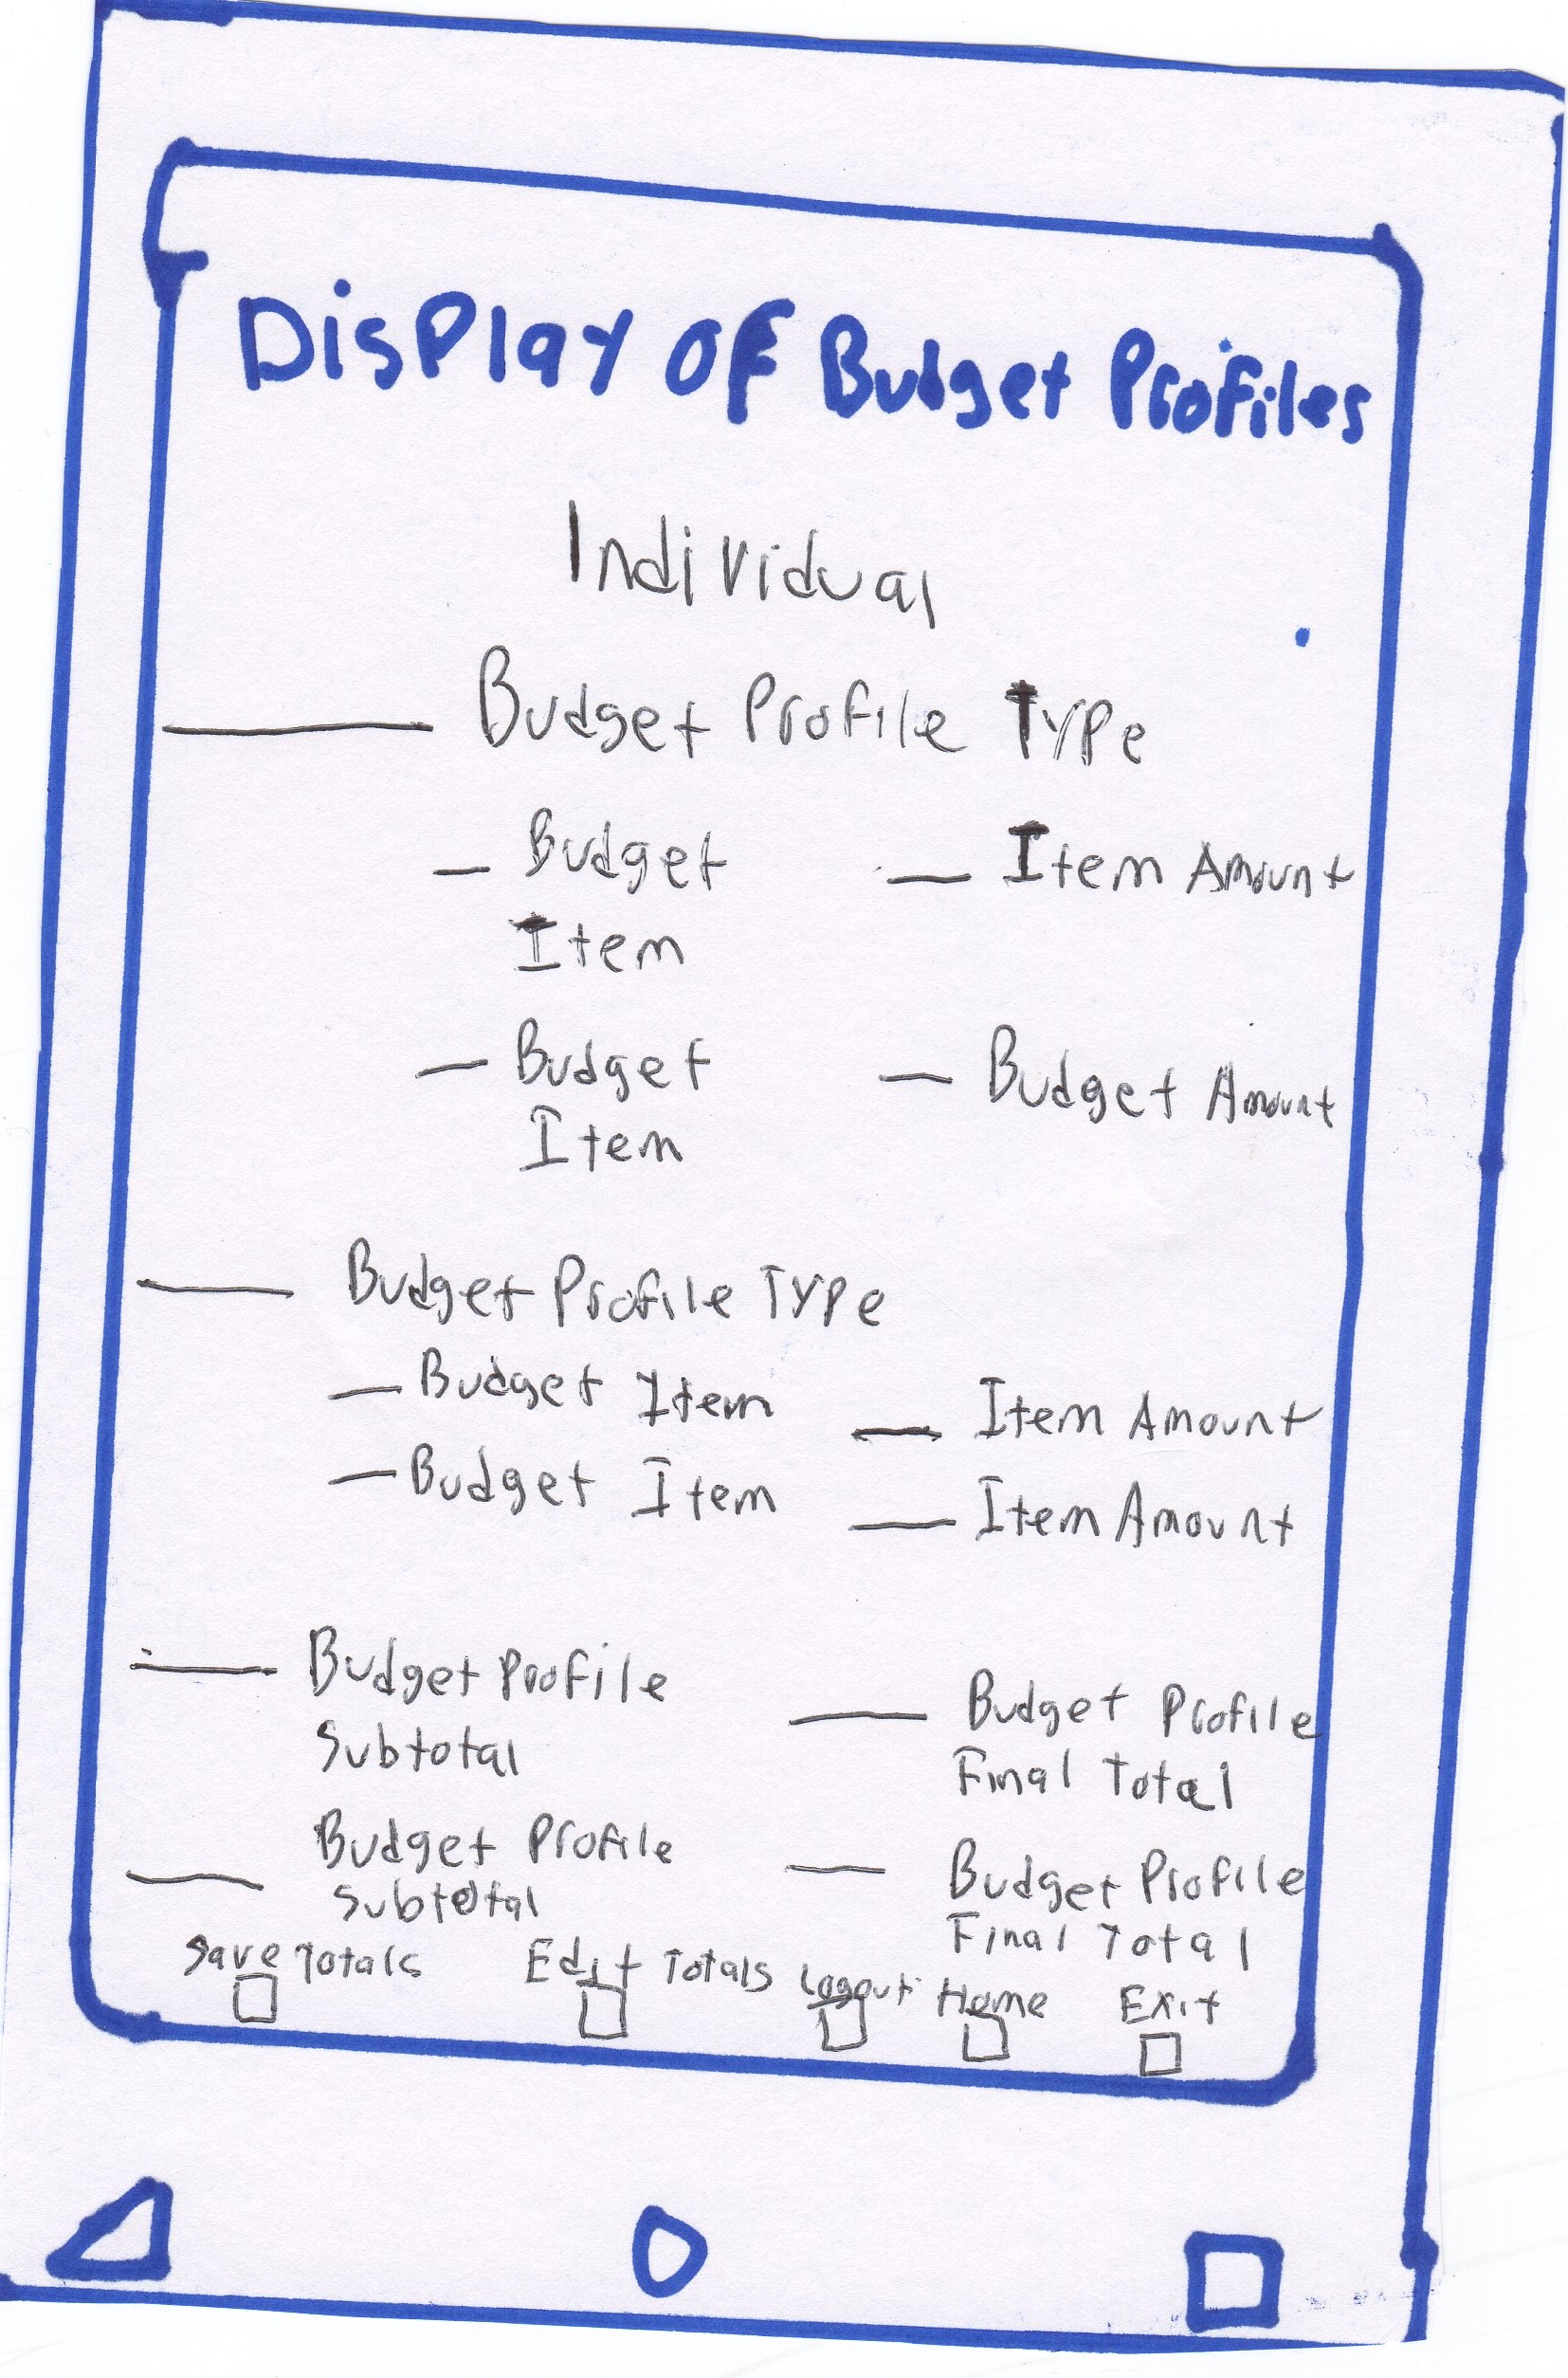 Display Of Budget Profiles
Individual
Budget Profile Type
Budget Item Amount
Item
Budget Budget Amount
Item
Budget Profile Type
Budget Item Item Amount
Budget Item Item Amount
Budget Profile Budget Profile
Subtotal Final Total
Budget Profile Budget Profile
Subtotal Final Total
Save Totals Edit Totals Logout Home Exit